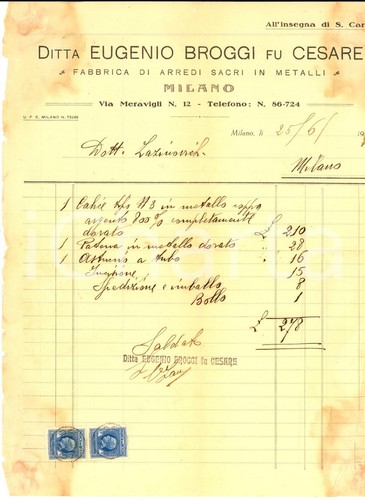 All'insegna di S. Car
DITTA EUGENIO BROGGI FU CESARE
FABBRICA DI ARREDI SACRI IN METALLI
MILANO
Via Meravigli N. 12 - Telefono: N. 86-724
U. P. E. MILANO N. 73289
Milano, li 25/6/ 19
Dott.
Milano
1 Calice tipo N3 in metallo coppa
argento 800% completamente
dorato £ 210
1 Patena in metallo dorato " 28
1 Astuccio a tubo " 16
15
Spedizione e imballo 8
Bollo 1
£ 278
Saldato
Ditta EUGENIO BROGGI fu CESARE